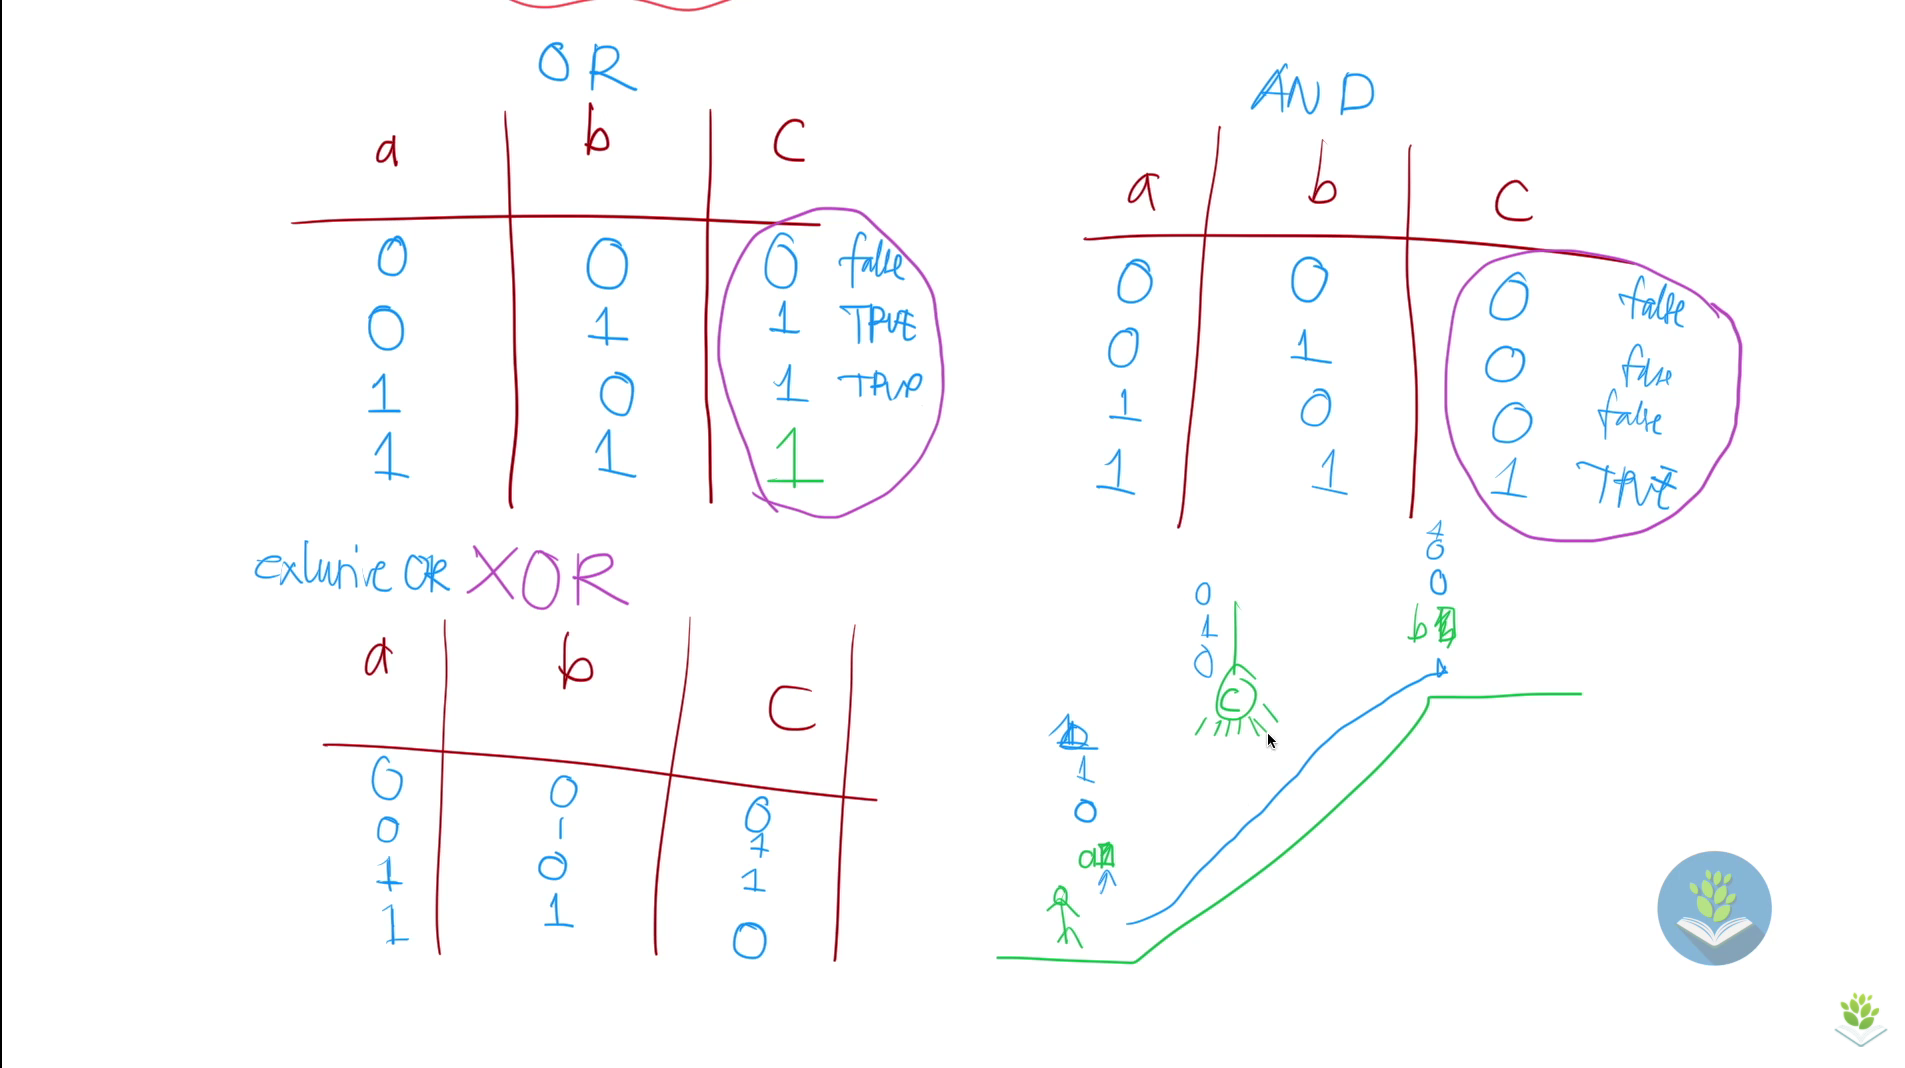 OR
a b C
0 0 0 false
0 1 1 TRUE
1 0 1 TRUE
1 1 1
AND
a b C
0 0 0 false
0 1 0 false
1 0 0 false
1 1 1 TRUE
exlusive OR XOR
a b C
0 0 0
0 1 1
1 0 1
1 1 0
0
1
0
C
0
0
b
1
0
a